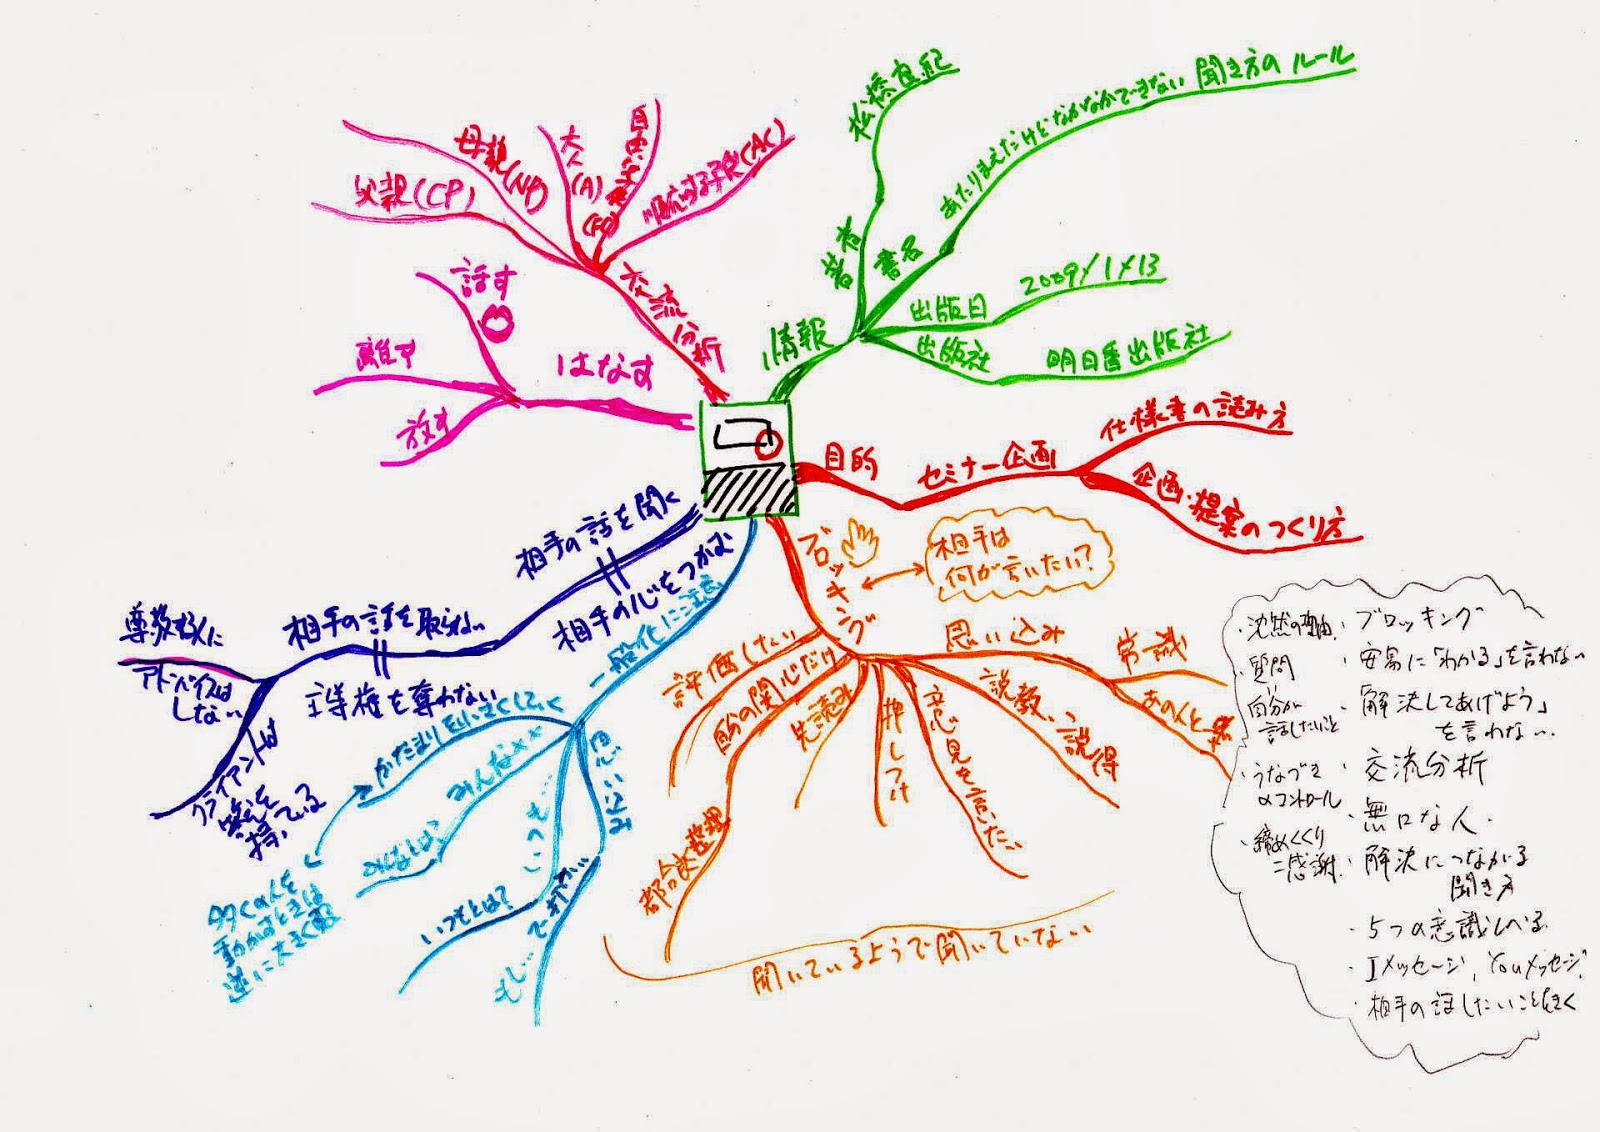 情報
著者
松橋良紀
書名
あたりまえだけどなかなかできない 聞き方のルール
出版日
2009/1/13
出版社
明日香出版社
目的
セミナー企画
仕様書の読み方
企画・提案のつくり方
ブロッキング
相手は
何が言いたい?
思い込み
常識
あの人と一緒
説教、説得
意見を言いたい
押しつけ
先読み
自分の関心だけ
都合次整理
評価したい
聞いているようで聞いていない
相手の心をつかむ
一般化に注意
思いこみ
でも…
もし…
いつも…
いつもとは?
みんな××
みんなは?
かたまりを小さくしていく
多くの人を
動かすときは
逆に大きく
相手の話を聞く
相手の話を取らない
主導権を奪わない
尊敬する人に
アドバイスは
しない
クライアントは
答えを
持っている
はなす
話す
離す
放す
交流分析
父親(CP)
母親(NP)
大人(A)
自由な子供(FC)
順応する子供(AC)
・沈黙の理由
・質問
・自分が
話したいこと
・うなづき
のコントロール
・締めくくり
=感謝
・ブロッキング
・安易に「わかる」を言わない
・「解決してあげよう」
を言わない
・交流分析
・無口な人
・解決につながる
聞き方
・5つの意識レベル
・Iメッセージ、Youメッセージ
・相手の話したいことをきく